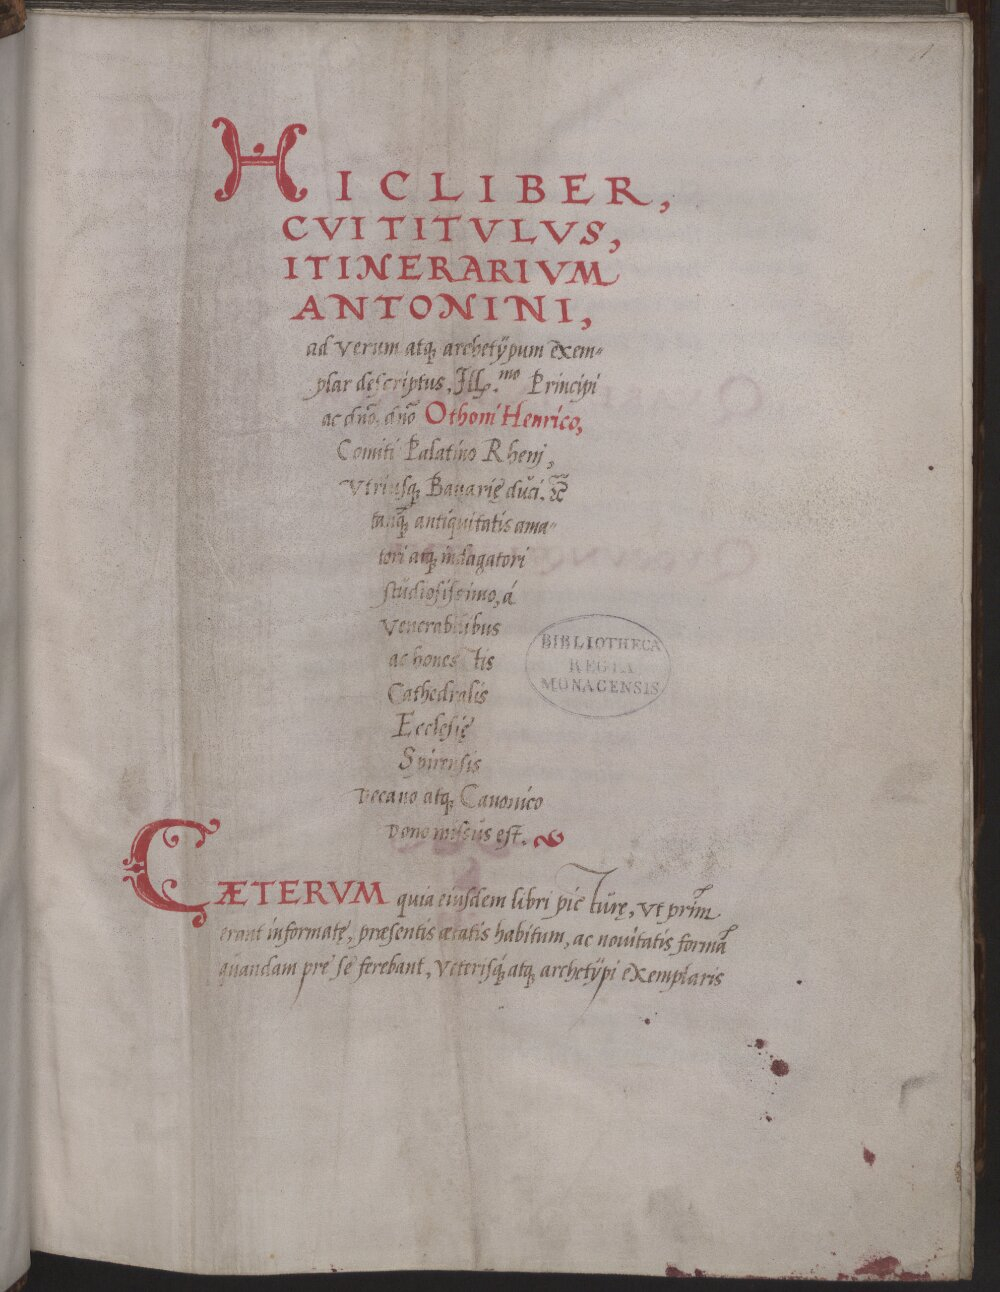 1
HIC LIBER,
CVI TITVLVS,
ITINERARIVM
ANTONINI,
ad verum atq; archetÿpum exem-
plar dęscriptus, Ill.mo Principi
ac dno, dno Othoni Henrico,
Comiti Palatino Rheni,
Vtriusq; Bauarię duci. &c
tanq; antiquitatis ama-
tori atq; indagatori
studiosissimo, á
Venerabilibus
ac hones tis
Cathedralis
Ecclesię
Spirensis
Decano atq; Canonico
Dono missus est.
BIBLIOTHECA
REGIA
MONACENSIS
CÆTERVM quia eiusdem libri pic turę, vt prim
erant informatę, præsentis ætatis habitum, ac nouitatis formā
quandam pre se ferebant, Veterisq; atq; archetÿpi exemplaris